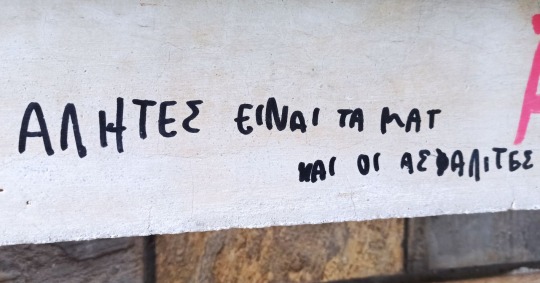 ΑΛΗΤΕΣ ΕΙΝΑΙ ΤΑ ΜΑΤ
ΚΑΙ ΟΙ ΑΣΦΑΛΙΤΕΣ